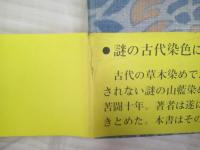 ●謎の古代染色に
古代の草木染めで
されない謎の山藍染め
苦闘十年。著者は遂に
きとめた。本書はその